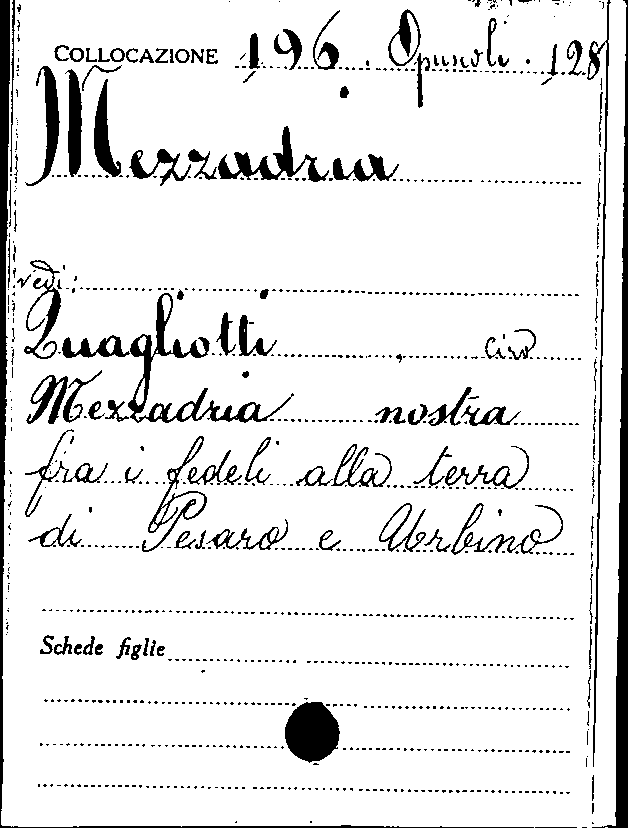 COLLOCAZIONE 196. Opuscoli. 128
Mezzadria
vedi:
Quagliotti, Ciro
Mezzadria nostra
fra i fedeli alla terra
di Pesaro e Urbino
Schede figlie